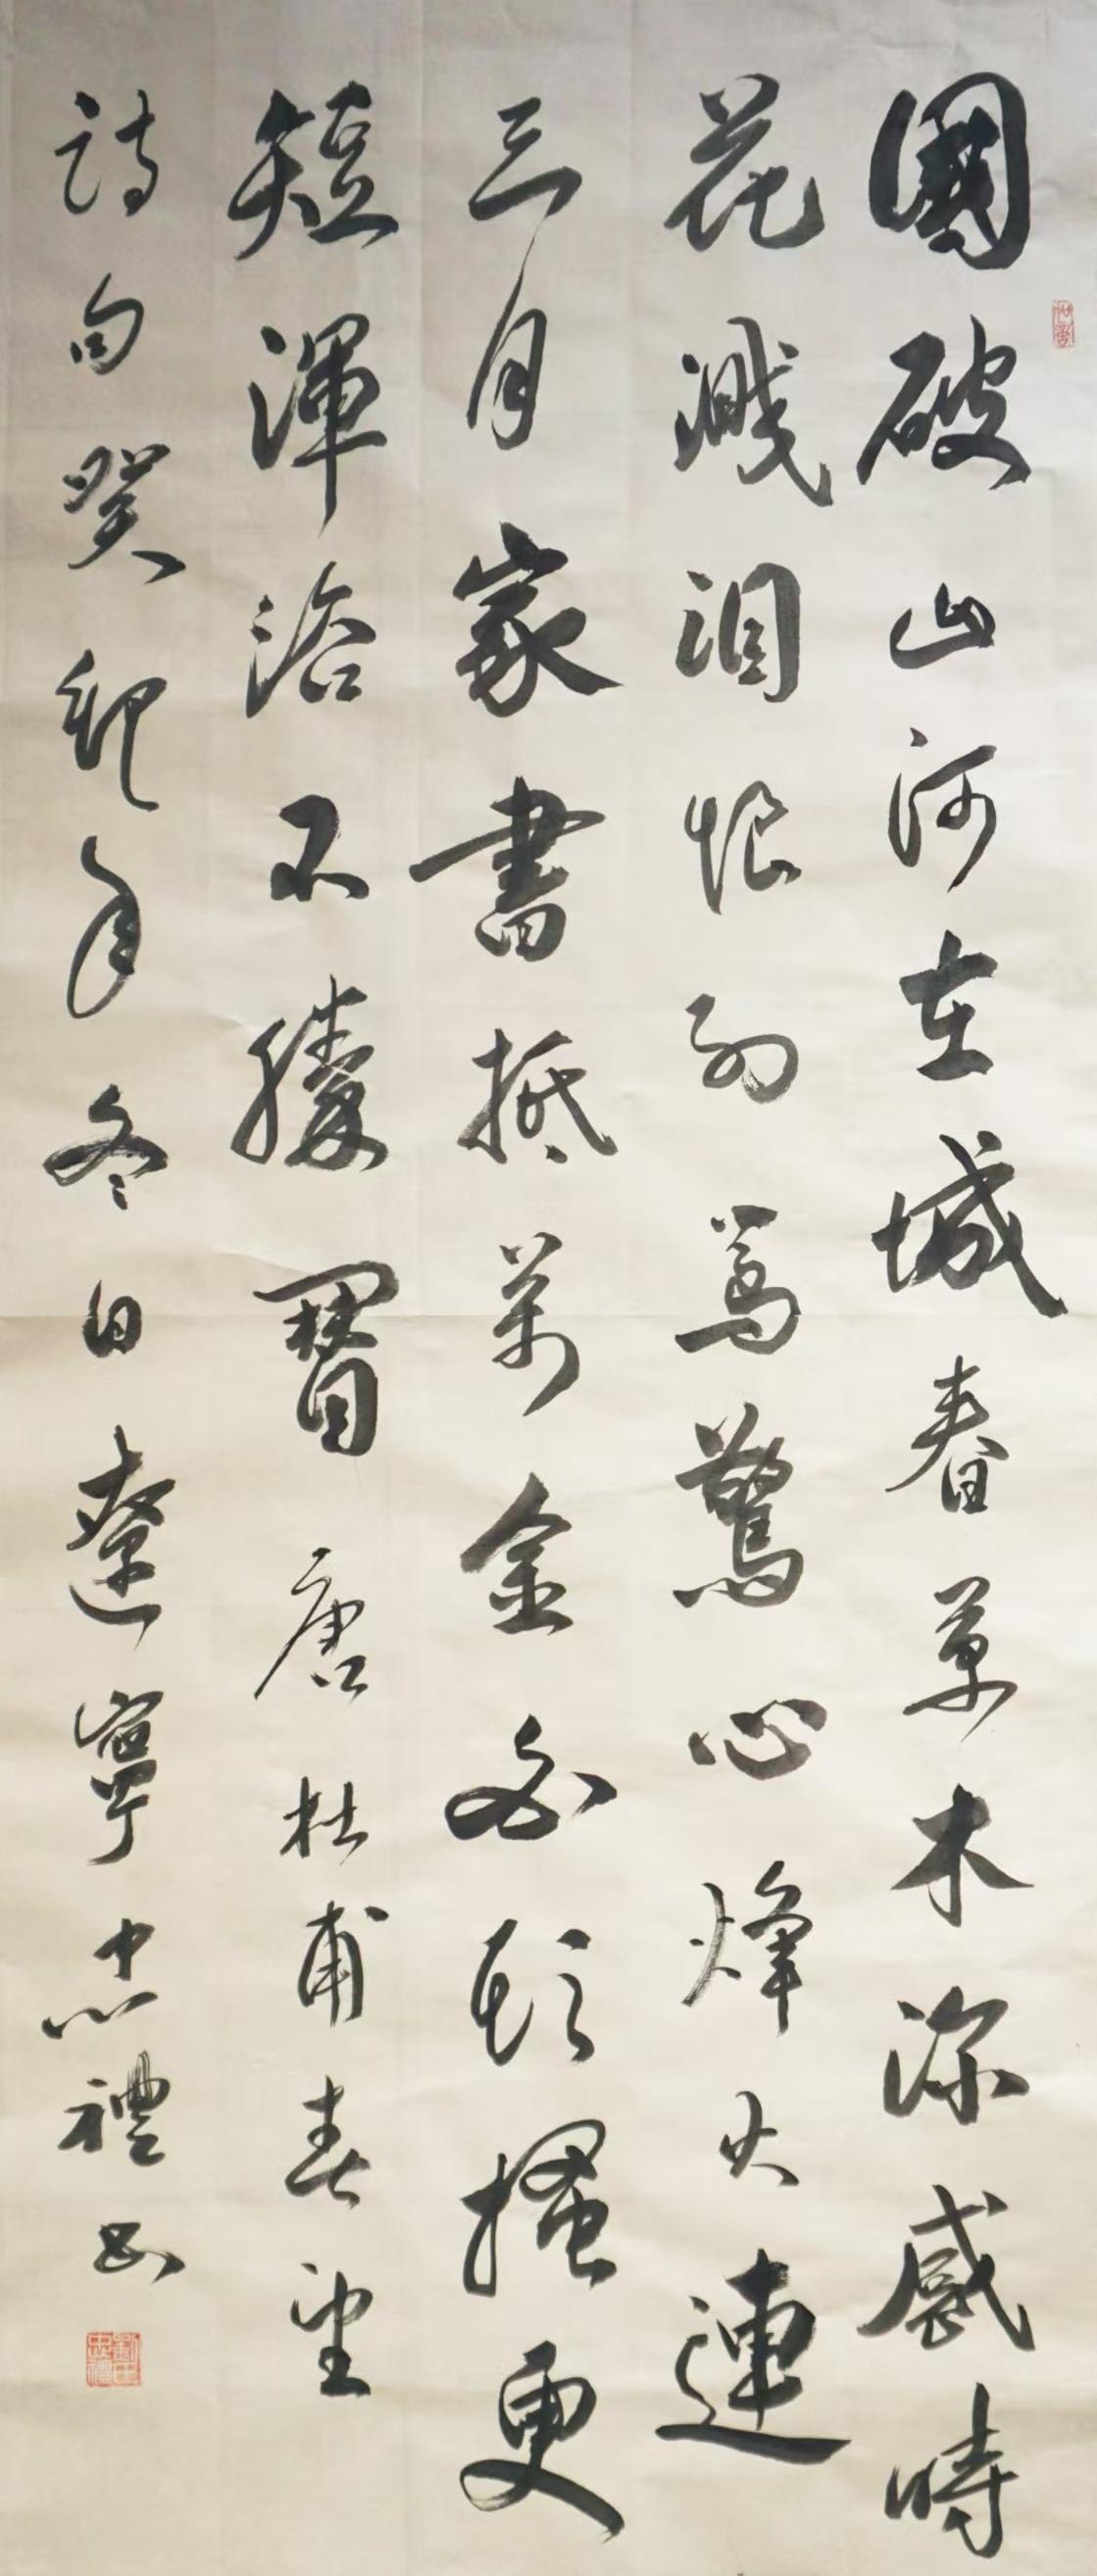 國破山河在城春草木深感時
花濺泪恨別鳥驚心烽火連
三月家書抵萬金白頭搔更
短渾浴不勝簪 唐杜甫春望
詩句癸卯年冬日遼寧忠禮書